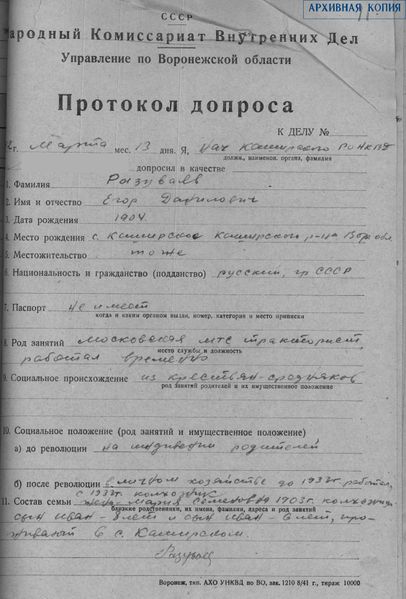 АРХИВНАЯ КОПИЯ
СССР
Народный Комиссариат Внутренних Дел
Управление по Воронежской области
Протокол допроса
К ДЕЛУ №
г. Марта мес. 13 дня. Я, Нач Каширского РО НКВД
должн., наименов. органа, фамилия
допросил в качестве
1. Фамилия Разуваев
2. Имя и отчество Егор Данилович
3. Дата рождения 1904
4. Место рождения с. Каширское Каширского р-на Ворон.
5. Местожительство тоже
6. Национальность и гражданство (подданство) русский, гр СССР
7. Паспорт не имеет
когда и каким органом выдан, номер, категория и место приписки
8. Род занятий Московская мтс тракторист
место службы и должность
работал временно
9. Социальное происхождение из крестьян-средняков
род занятий родителей и их имущественное положение
10. Социальное положение (род занятий и имущественное положение)
а) до революции на иждивении родителей
б) после революции в личном хозяйстве до 193 г. работал,
с 193 г. колхозник
11. Состав семьи жена Мария Семеновна 1903г. колхозница
близкие родственники, их имена, фамилии, адреса и род занятий
сын Иван - 8 лет и сын Иван - 6 лет, про-
живают в с. Каширском.
Разуваев
Воронеж, тип. АХО УНКВД по ВО, зак. 1210 8/41 г., тираж 10000